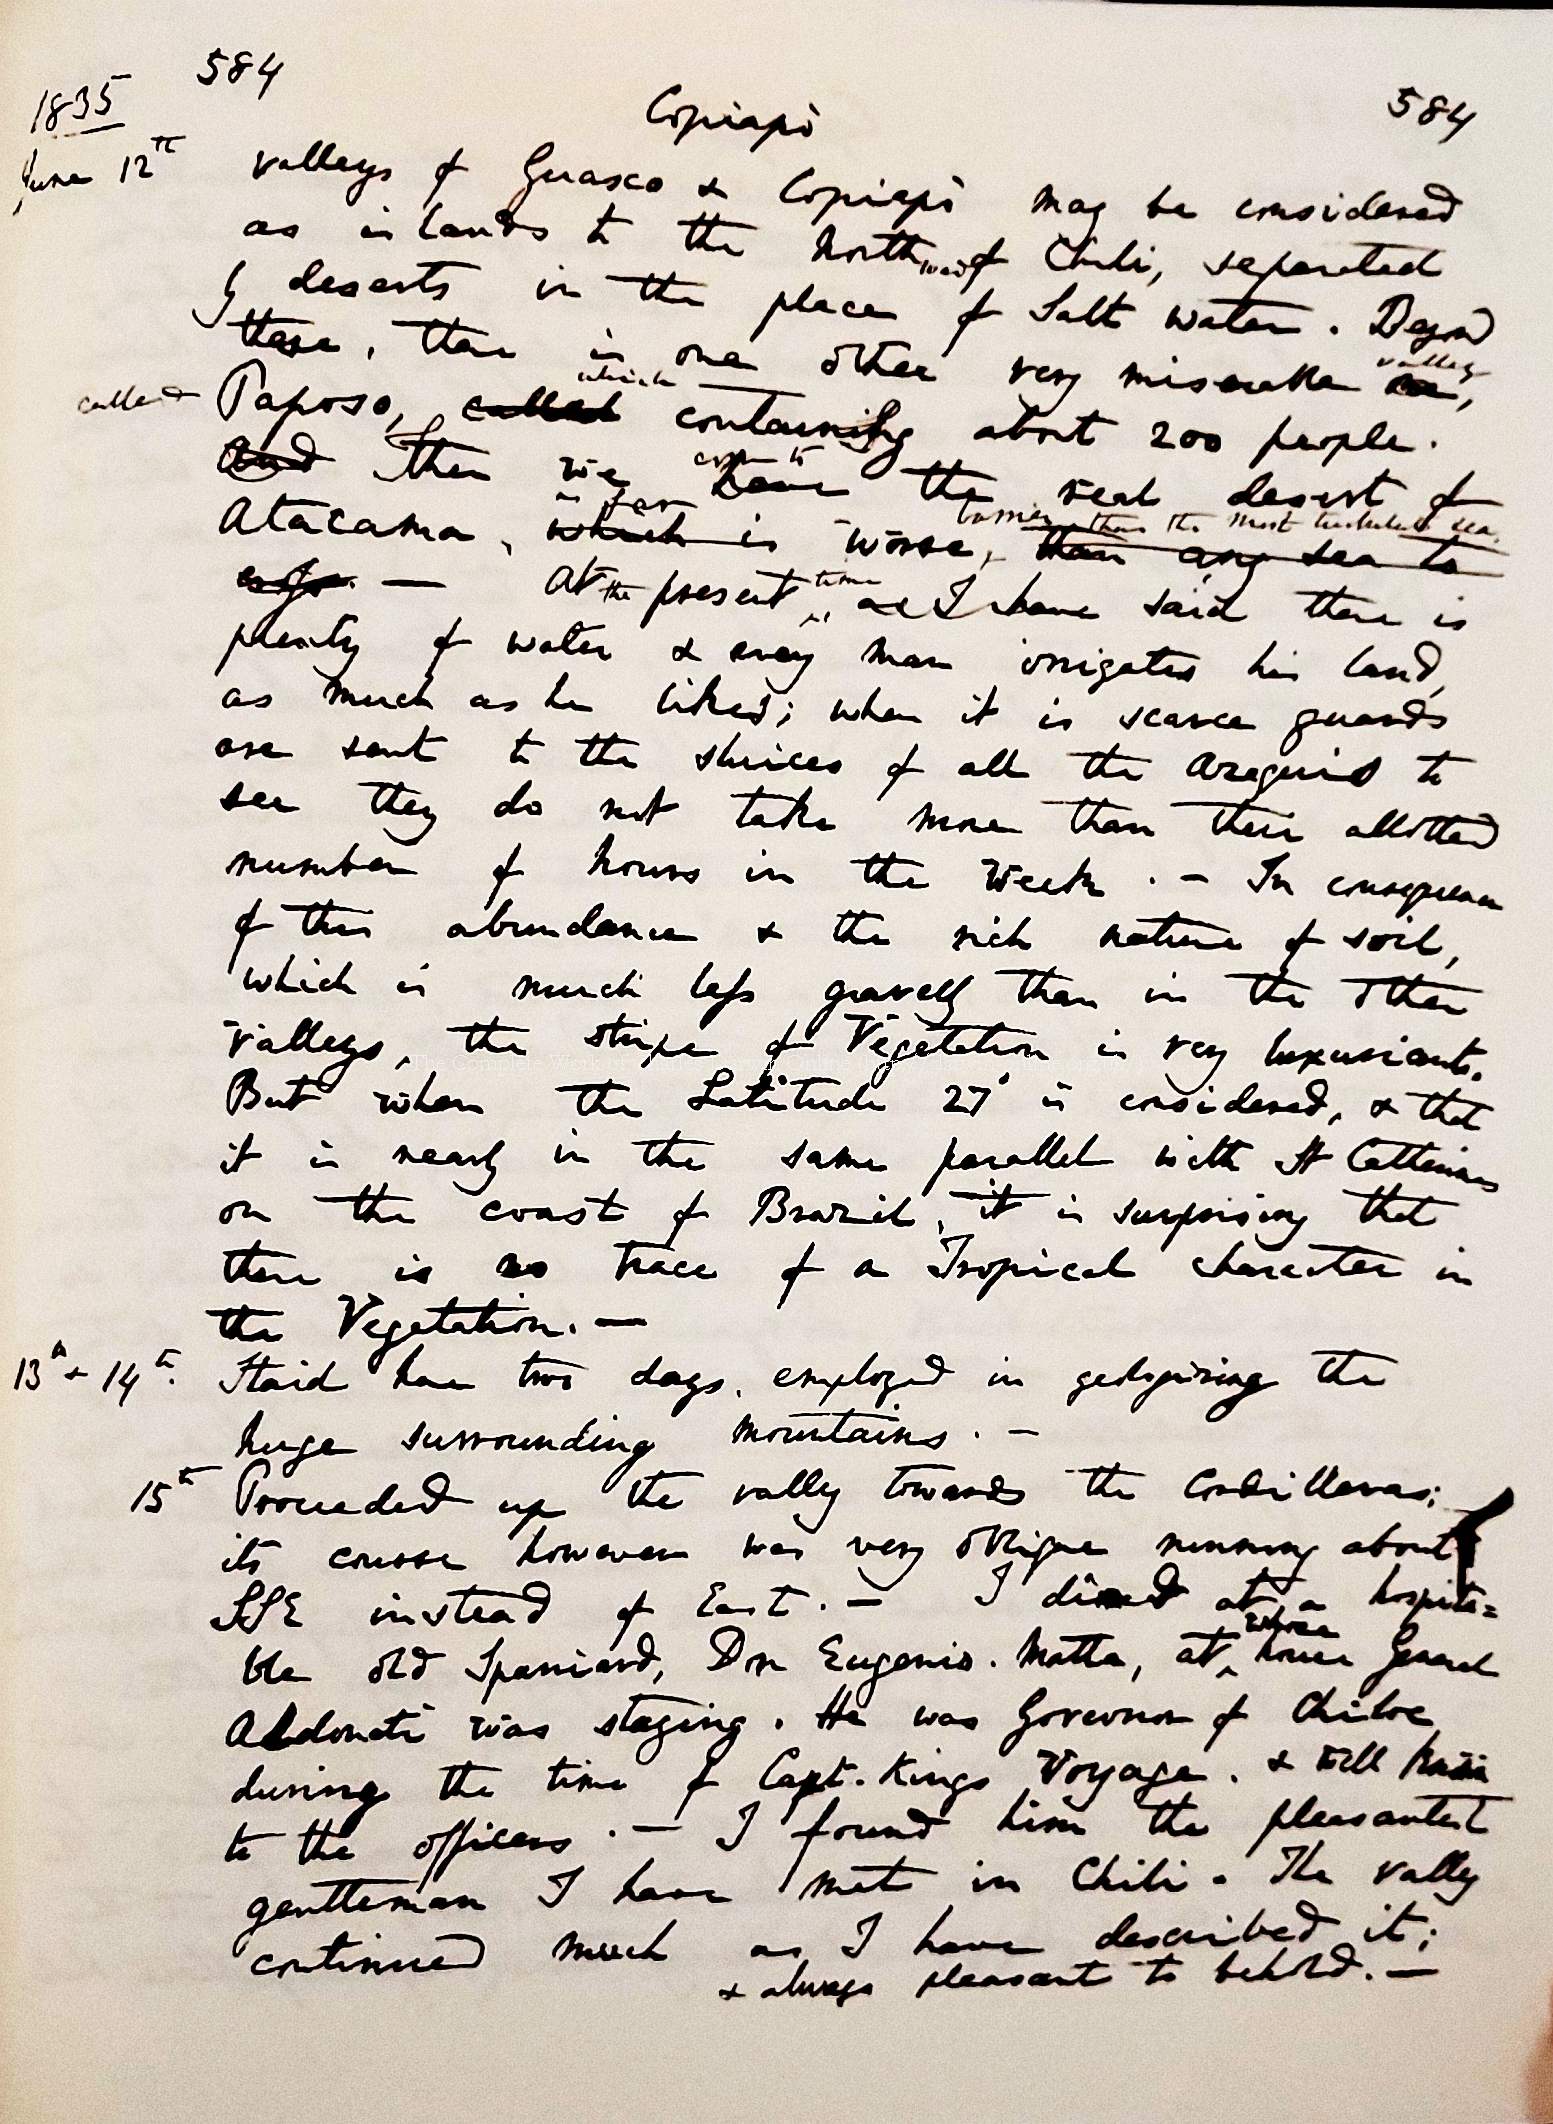 584
1835
Copiapò
584
June 12th valleys of Guasco & Copiapò may be considered
as islands to the North ward of Chili, separated
by deserts in the place of Salt water. Beyond
these, there is one other very miserable valley,
called Paposo, called which containing about 200 people.
and Then we come to have the real desert of
Atacama, a far which is worse, barrier, than the most turbulent sea. than any sea to
At the present time, as I have said there is
plenty of water & every man irrigates his land,
as much as he likes; when it is scarce guards
are sent to the sluices of all the Azequias to
see they do not take more than their allotted
number of hours in the week. — In consequence
of this abundance & the rich nature of soil,
which is much less gravelly than in the other
valleys, the stripe of Vegetation is very luxuriant.
But when the Latitude 27° is considered, & that
it is nearly in the same parallel with St Catherines
on the coast of Brazil, it is surprising that
there is no trace of a Tropical character in
the Vegetation. —
13th & 14th. Staid here two days, employed in geologizing the
huge surrounding mountains. —
15th Proceeded up the vally towards the Cordilleras;
its course however was very oblique running about
SSE instead of East. — I dined at a hospita=
ble old Spaniard, Don Eugenio. Matta, at whose house General
Aldonati was staying. He was Governor of Chiloe
during the time of Capt. Kings Voyage. & well known
to the officers. — I found him the pleasantest
gentleman I have met in Chili. The vally
continued much as I have described it;
& always pleasant to behold. —